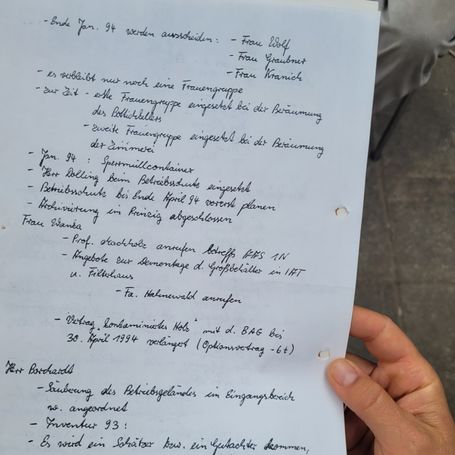 - Ende Jan. 94 werden ausscheiden: - Frau Wolf
- Frau Graubner
- Frau Kranich
- es verbleibt nur noch eine Frauengruppe
- zur Zeit - erste Frauengruppe eingesetzt bei der Beräumung
des
- zweite Frauengruppe eingesetzt bei der Beräumung
der Zinnerei
- Jan. 94 : Sperrmüllcontainer
- Herr Dolling beim Betriebsschutz eingesetzt
- Betriebsschutz bis Ende April 94 vorerst planen
- Archivierung in abgeschlossen
Frau
- Prof. Machholz anrufen betreffs
- Angebote zur Demontage d. Großbehälter in
u. Filterhaus
- Fa. Hahnewald anrufen
- Vertrag "kontaminiertes Holz" mit d. BAG bis
30. April 1994 verlängert (Optionsvertrag - 6 t)
Herr Borchardt
- Säuberung des Betriebsgeländes im Eingangsbereich
w. angeordnet
- Inventur 93 :
- Es wird ein Schätzer bzw. ein Gutachter kommen,